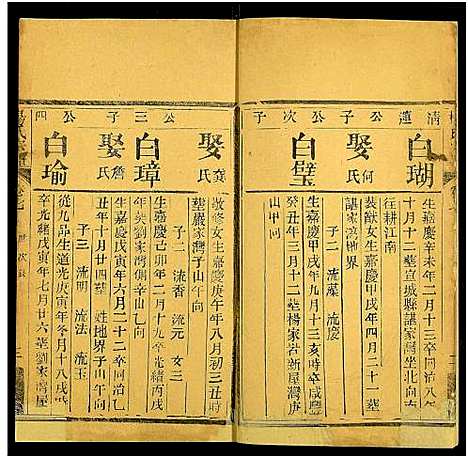 清蓮公子公次子
白瑚
生嘉慶辛未年二月十三卒同治八年
十月十二葬宣城縣諶家灣坐北向南
往耕江南
娶何氏
裝猷女生嘉慶甲戌年四月二十一葬
諶家灣地界
子二 流葉 流慶
白璧
生嘉慶甲戌年九月十三亥時卒咸豐
癸丑年三月十二葬楊家岩新屋灣庚
山甲向
公三子公四
娶龔氏
敬修女生嘉慶庚午年八月初三丑時
葬嚴家灣子山午向
子二 流香 流元 女三
白璋
生嘉慶己卯年二月十九卒光緒丙戌
年葬劉家灣側辛山乙向
娶詹氏
生嘉慶戊寅年六月二十二卒同治乙
丑年十月廿四葬 姓地界子山午向
子三 流明 流法 流玉
白瑜
從九品生道光庚寅年冬月十八戌時
卒光緒戊寅年七月廿六葬劉家灣屋